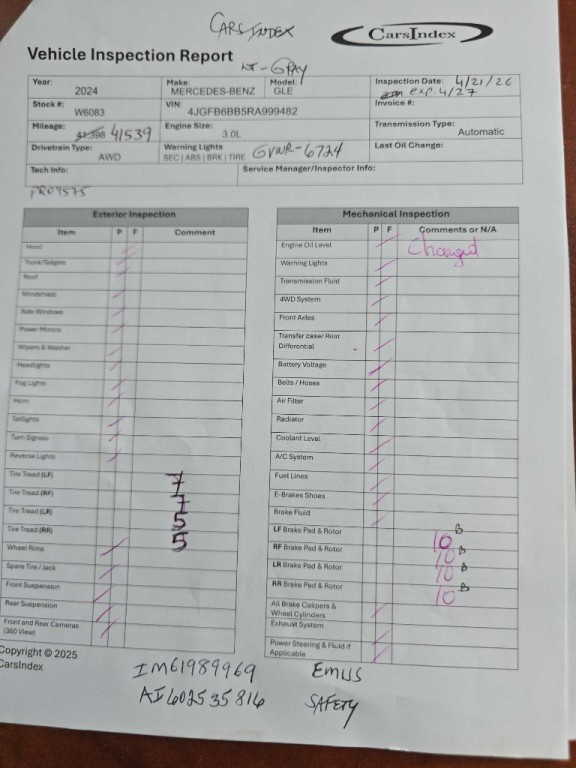 CARSINDEX
CarsIndex
Vehicle Inspection Report
INT-GRAY
Year: 2024
Make: MERCEDES-BENZ
Model: GLE
Inspection Date: 4/21/26
exp. 4/27
Stock #: W6083
VIN: 4JGFB6BB5RA999482
Invoice #:
Mileage: 41,398 41539
Engine Size: 3.0L
Transmission Type: Automatic
Drivetrain Type: AWD
Warning Lights SEC | ABS | BRK | TIRE
GVWR-6724
Last Oil Change:
Tech Info:
Service Manager/Inspector Info:
Exterior Inspection
Item P F Comment
Hood
Trunk/Tailgate
Roof
Windshield
Side Windows
Power Mirrors
Wipers & Washer
Headlights
Fog Lights
Horn
Taillights
Turn Signals
Reverse Lights
Tire Tread (LF) 7
Tire Tread (RF) 7
Tire Tread (LR) 5
Tire Tread (RR) 5
Wheel Rims
Spare Tire / Jack
Front Suspension
Rear Suspension
Front and Rear Cameras
(360 View)
Mechanical Inspection
Item P F Comments or N/A
Engine Oil Level Changed
Warning Lights
Transmission Fluid
4WD System
Front Axles
Transfer case/ Rear
Differential
Battery Voltage
Belts / Hoses
Air Filter
Radiator
Coolant Level
A/C System
Fuel Lines
E-Brakes Shoes
Brake Fluid
LF Brake Pad & Rotor 10
RF Brake Pad & Rotor 10
LR Brake Pad & Rotor 10
RR Brake Pad & Rotor 10
All Brake Calipers &
Wheel Cylinders
Exhaust System
Power Steering & Fluid if
Applicable
Copyright © 2025
CarsIndex
IM61989969 EMISS
AI602535816 SAFETY